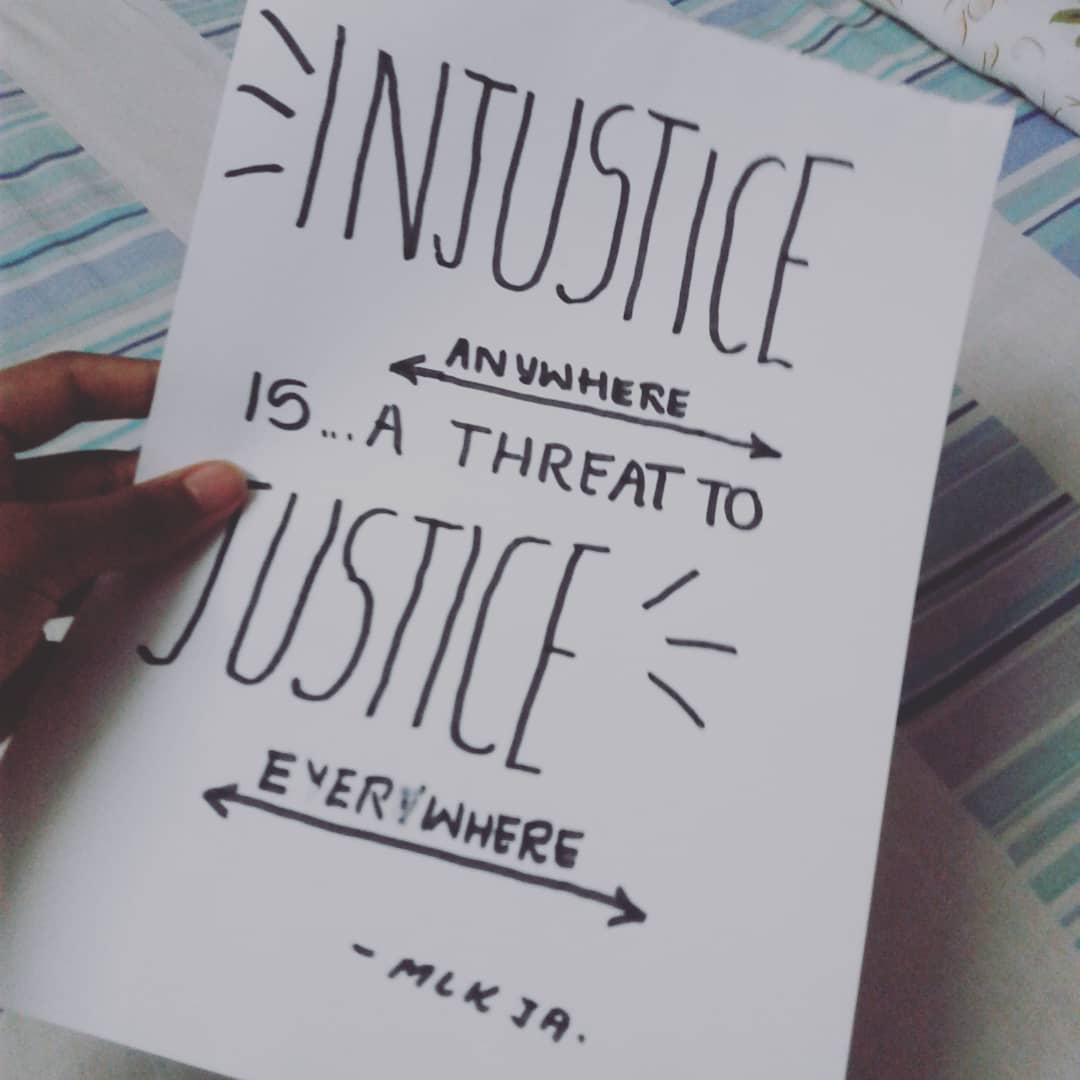 INJUSTICE
ANYWHERE
IS...A THREAT TO
JUSTICE
EVERYWHERE
- MLK JR.